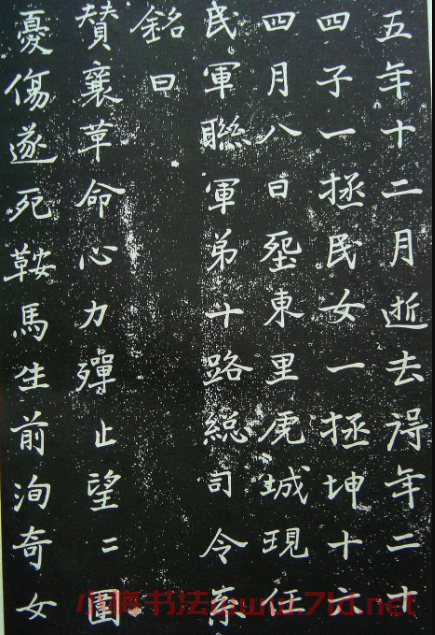 五年十二月逝去得年二十
四子一拯民女一拯坤十六
四月八日東里虎城現任
民軍聯軍弟十路総司令系
銘曰
賛襄革命心力殫止望二
憂傷遂死鞍馬生前洵奇女
书法www.7td.net